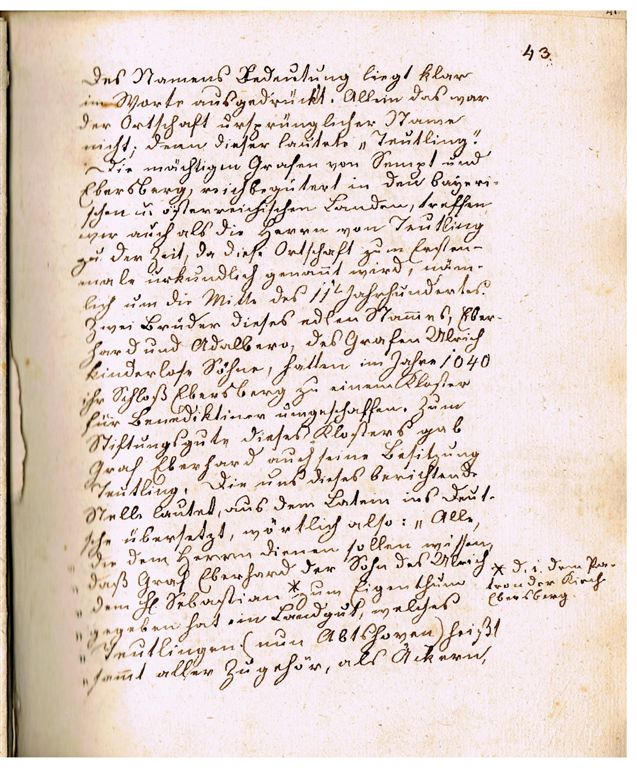 43.
Des Namens Bedeutung liegt klar
im Worte ausgedrückt. Allein das war
der Ortschaft ursprünglicher Name
nicht; denn dieser lautete „Teutling."
Die mächtigen Grafen von Sempt und
Ebersberg, reichbegütert in den bayeri-
schen u. österreichischen Landen, treffen
wir auch als die Herrn von Teutling
zu der Zeit, da diese Ortschaft zum Ersten-
male urkundlich genannt wird, näm-
lich um die Mitte des 11t Jahrhundertes.
Zwei Brüder dieses edlen Stammes, Eber-
hard und Adalbero, des Grafen Ulrich
kinderlose Söhne, hatten im Jahre 1040
ihr Schloß Ebersberg zu einem Kloster
für Benediktiner umgeschaffen. Zum
Stiftungsgute dieses Klosters gab
Graf Eberhard auch seine Besitzung
Teutling. Die uns dieses berichtende
Stelle lautet, aus dem Latein ins Deut-
sche übersetzt, wörtlich also: „Alle,
die dem Herrn dienen sollen wissen,
„ daß Graf Eberhard der Sohn des Ulrich
„ dem hl Sebastian * zum Eigenthum
„ gegeben hat ein Landgut, welches
„ Teutlingen (nun Abtshoven) heißt
„ sammt aller Zugehör, als Äckern,
* d. i. dem Pa-
tron der Kirch
Ebersberg.